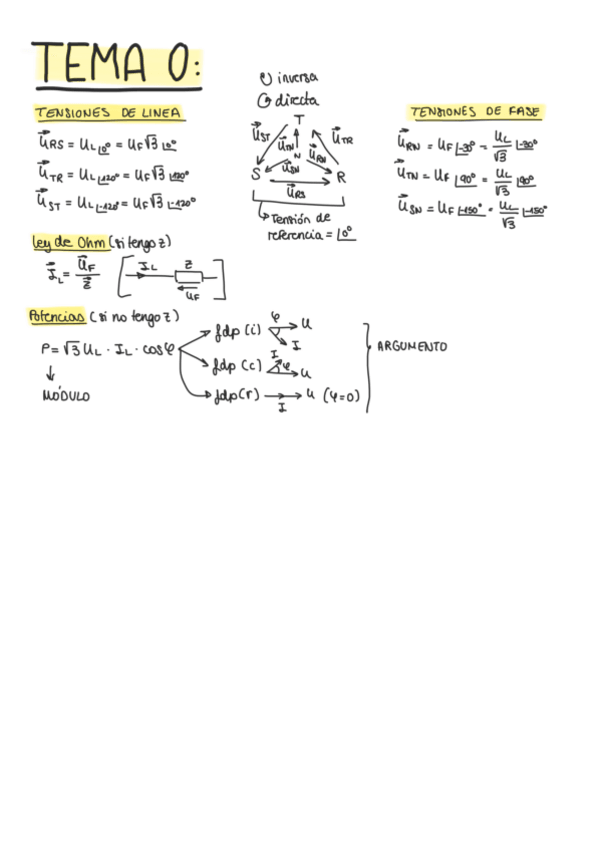 TEMA 0:
inversa
directa
TENSIONES DE LINEA
U⃗RS = UL∠0° = UF√3∠0°
U⃗TR = UL∠120° = UF√3∠120°
U⃗ST = UL∠-120° = UF√3∠-120°
T
U⃗ST U⃗TN U⃗TR
N U⃗RN
U⃗SN
S R
U⃗RS
Tensión de
referencia = ∠0°
TENSIONES DE FASE
U⃗RN = UF∠-30° = UL/√3 ∠-30°
U⃗TN = UF∠90° = UL/√3 ∠90°
U⃗SN = UF∠-150° = UL/√3 ∠-150°
Ley de Ohm (si tengo z)
I⃗L = U⃗F/Z⃗
IL Z
UF
Potencias (si no tengo z)
P = √3 UL · IL · cosφ
MÓDULO
fdp (i) φ U
I
fdp (c) I φ U
fdp (r) I U (φ=0)
ARGUMENTO